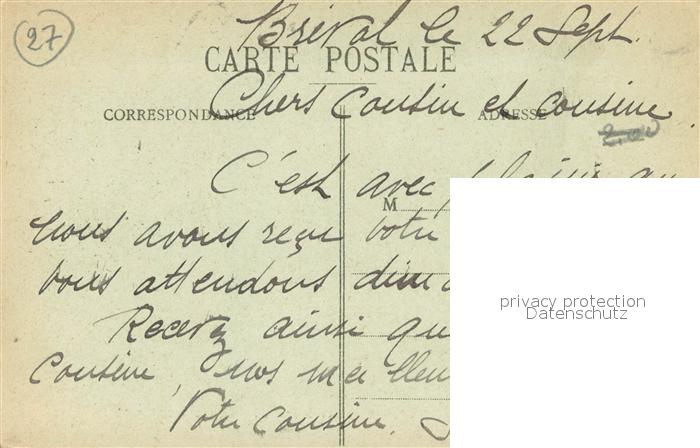 27
Bréval le 22 Sept.
CARTE POSTALE
Chers cousin et cousine
CORRESPONDANCE ADRESSE
2,00
C'est avec plaisir que
M
nous avons reçu votre
vous attendons
Recevez ainsi que
cousine, nos meilleur
Votre cousine.
privacy protection
Datenschutz